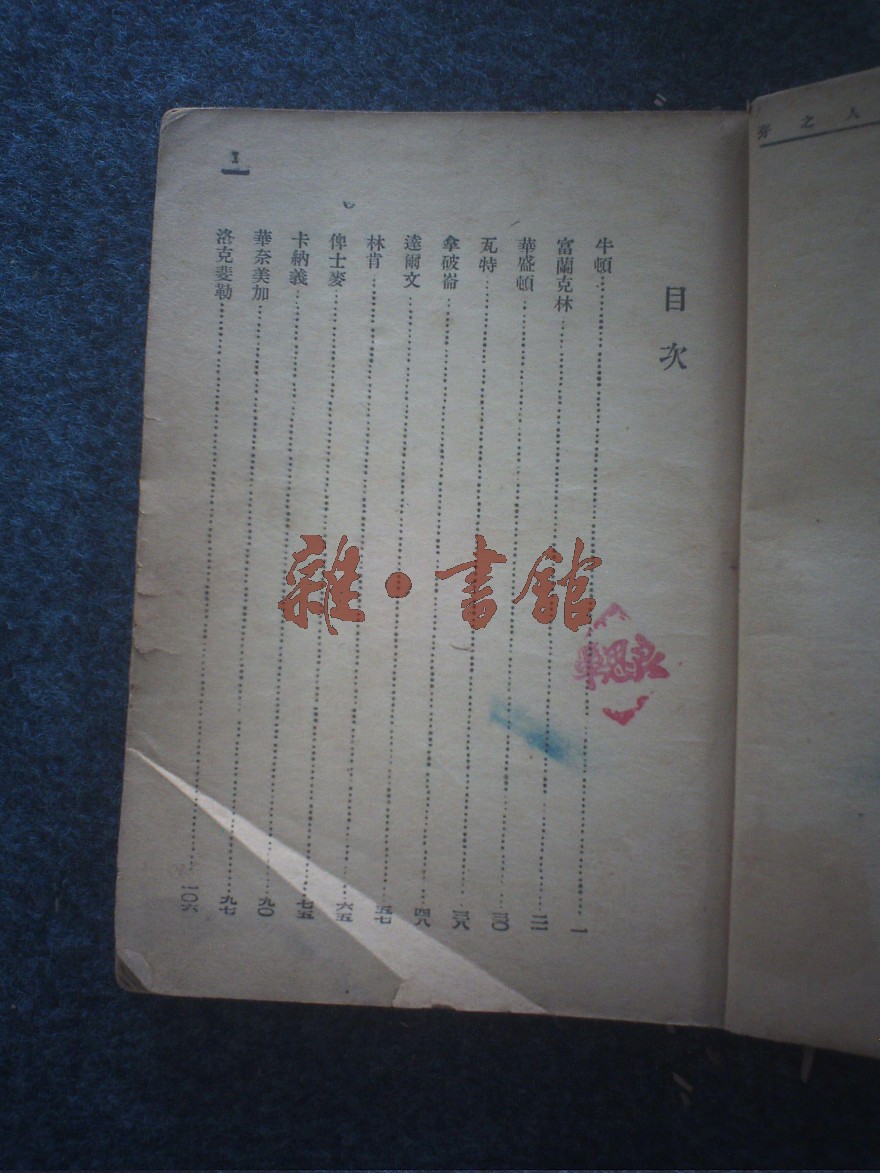 人之
目次
牛頓……一
富蘭克林……
華盛頓……三〇
瓦特……三八
拿破崙……四八
達爾文……五七
林肯……六五
俾士麥……七五
卡納義……九〇
華奈美加……九七
洛克斐勒……一〇六
1
雜·書館